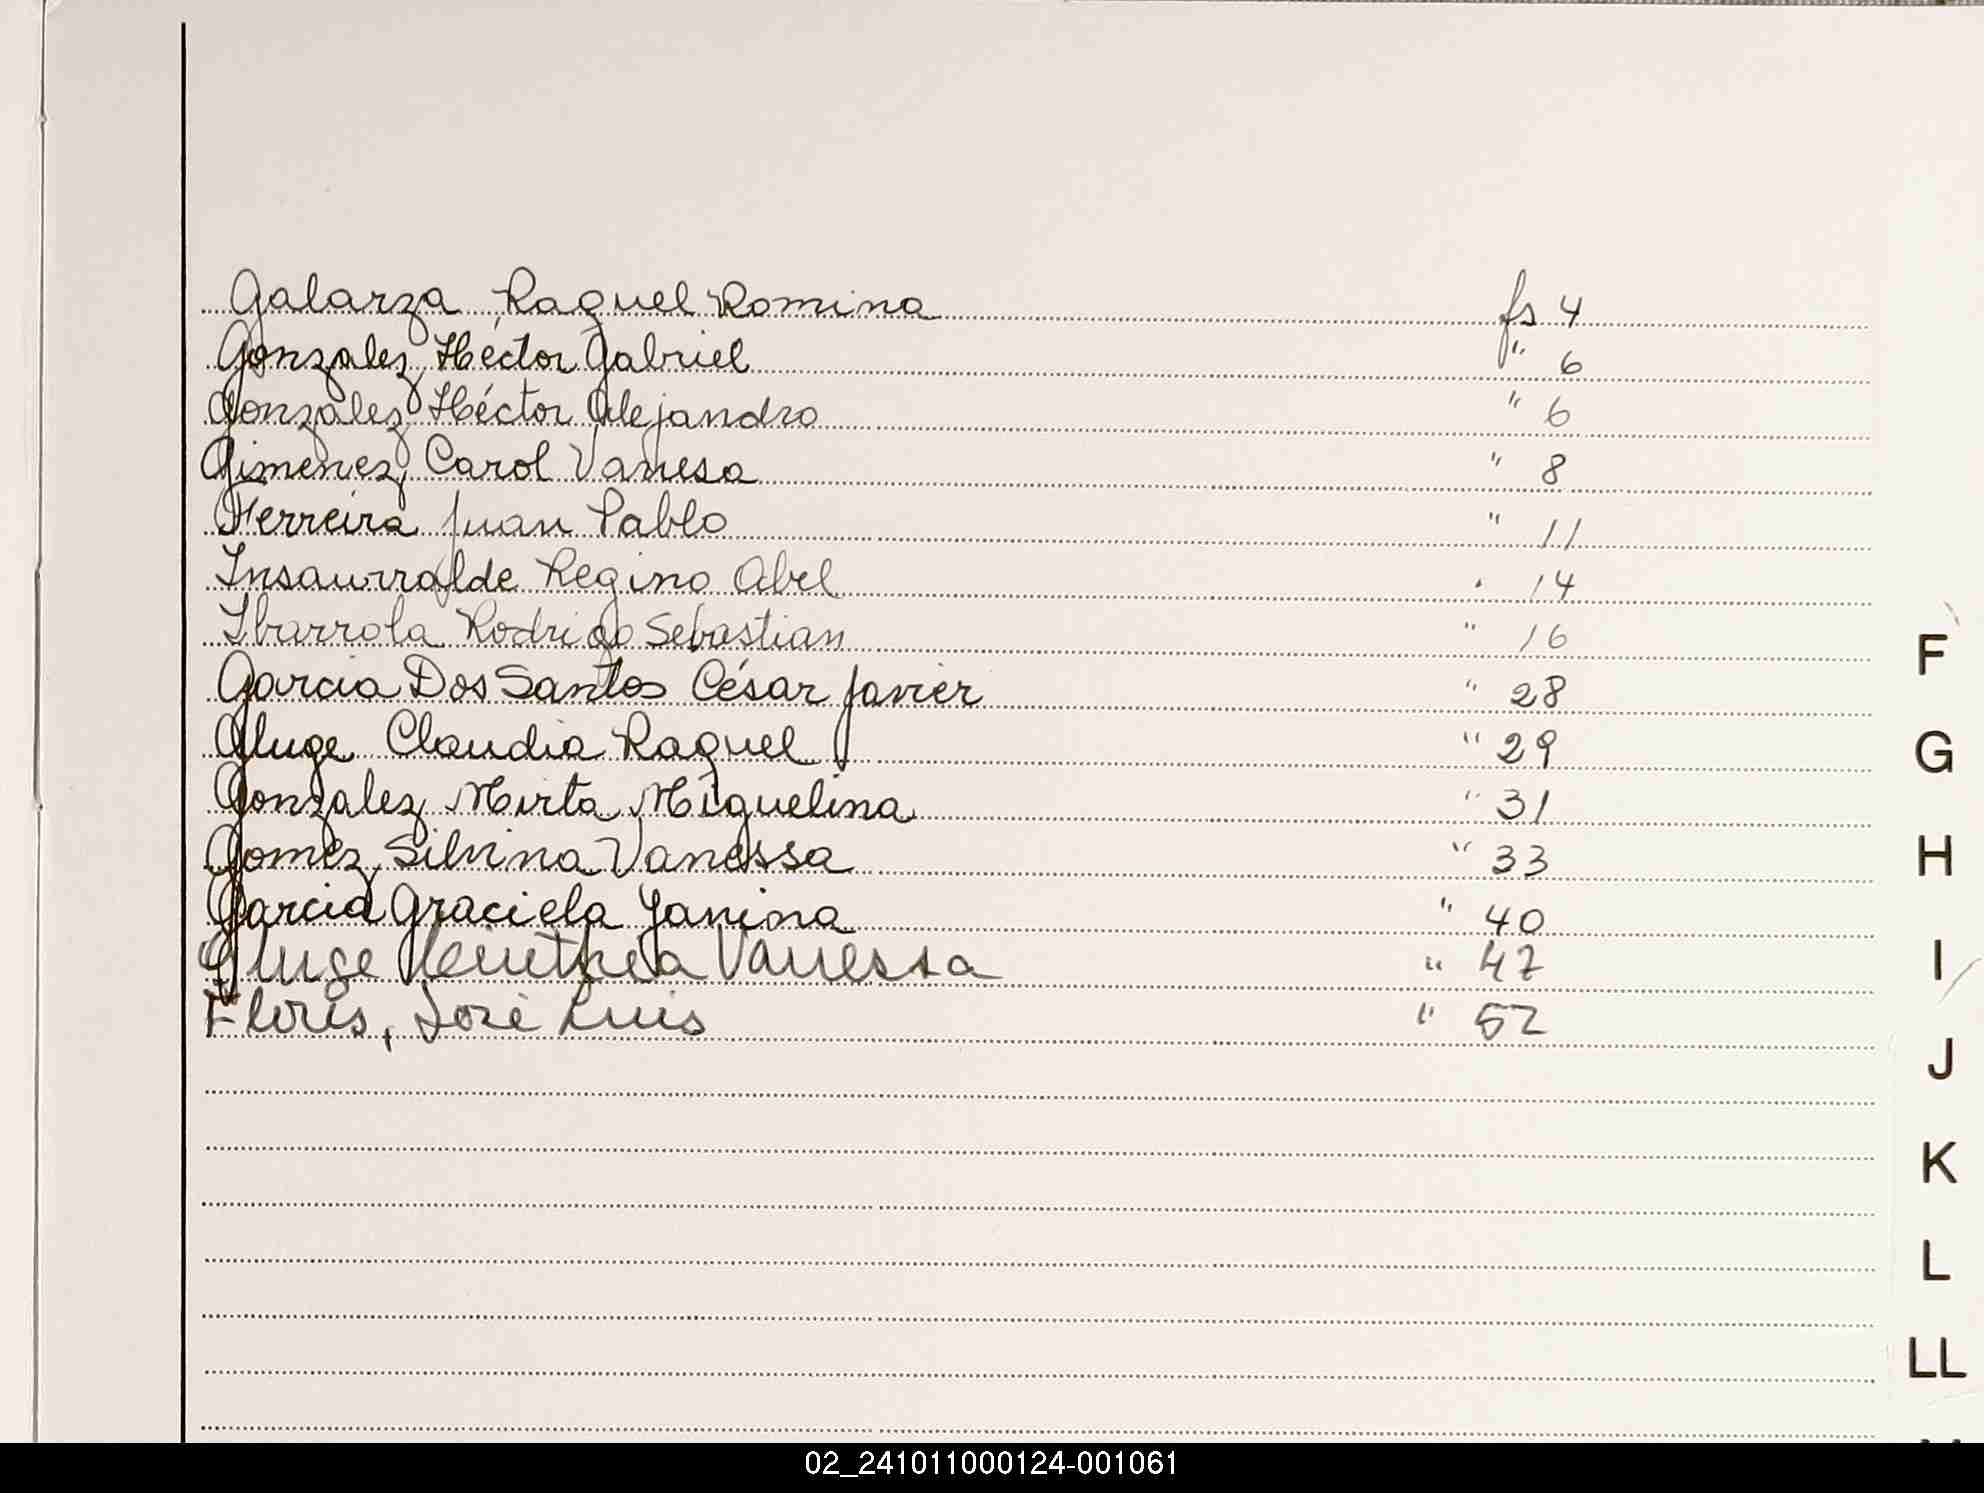 Galarza, Raquel Romina fs 4
Gonzalez, Héctor Gabriel " 6
Gonzalez, Héctor Alejandro " 6
Gimenez, Carol Vanesa " 8
Ferreira Juan Pablo " 11
Insaurralde Regino Abel " 14
Ibarrola Rodrigo Sebastian " 16
Garcia Dos Santos César Javier " 28
Gluge Claudia Raquel " 29
Gonzalez Mirta Miguelina " 31
Gomez, Silvina Vanessa " 33
Garcia Graciela Yanina " 40
Gluge Vanessa " 47
Flores, José Luis " 52
F
G
H
I
J
K
L
LL
02_241011000124-001061